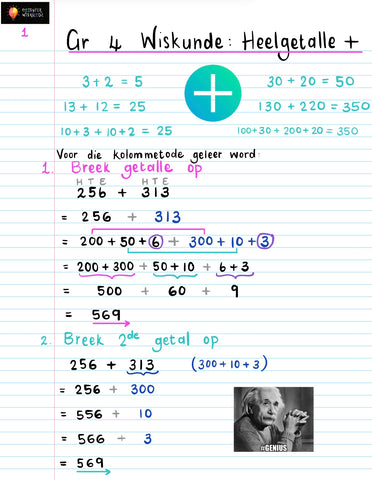 1
Gr 4 Wiskunde: Heelgetalle +
3 + 2 = 5
30 + 20 = 50
13 + 12 = 25
130 + 220 = 350
10 + 3 + 10 + 2 = 25
100 + 30 + 200 + 20 = 350
+
Voor die kolommetode geleer word:
1. Breek getalle op
H T E H T E
256 + 313
= 256 + 313
= 200 + 50 + 6 + 300 + 10 + 3
= 200 + 300 + 50 + 10 + 6 + 3
= 500 + 60 + 9
= 569
2. Breek 2de getal op
256 + 313 (300 + 10 + 3)
= 256 + 300
= 556 + 10
= 566 + 3
= 569
#GENIUS